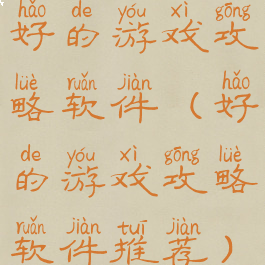 hǎo de yóu xì gōng
好的游戏攻
lüè ruǎn jiàn hǎo
略软件（好
de yóu xì gōng lüè
的游戏攻略
ruǎn jiàn tuī jiàn
软件推荐）